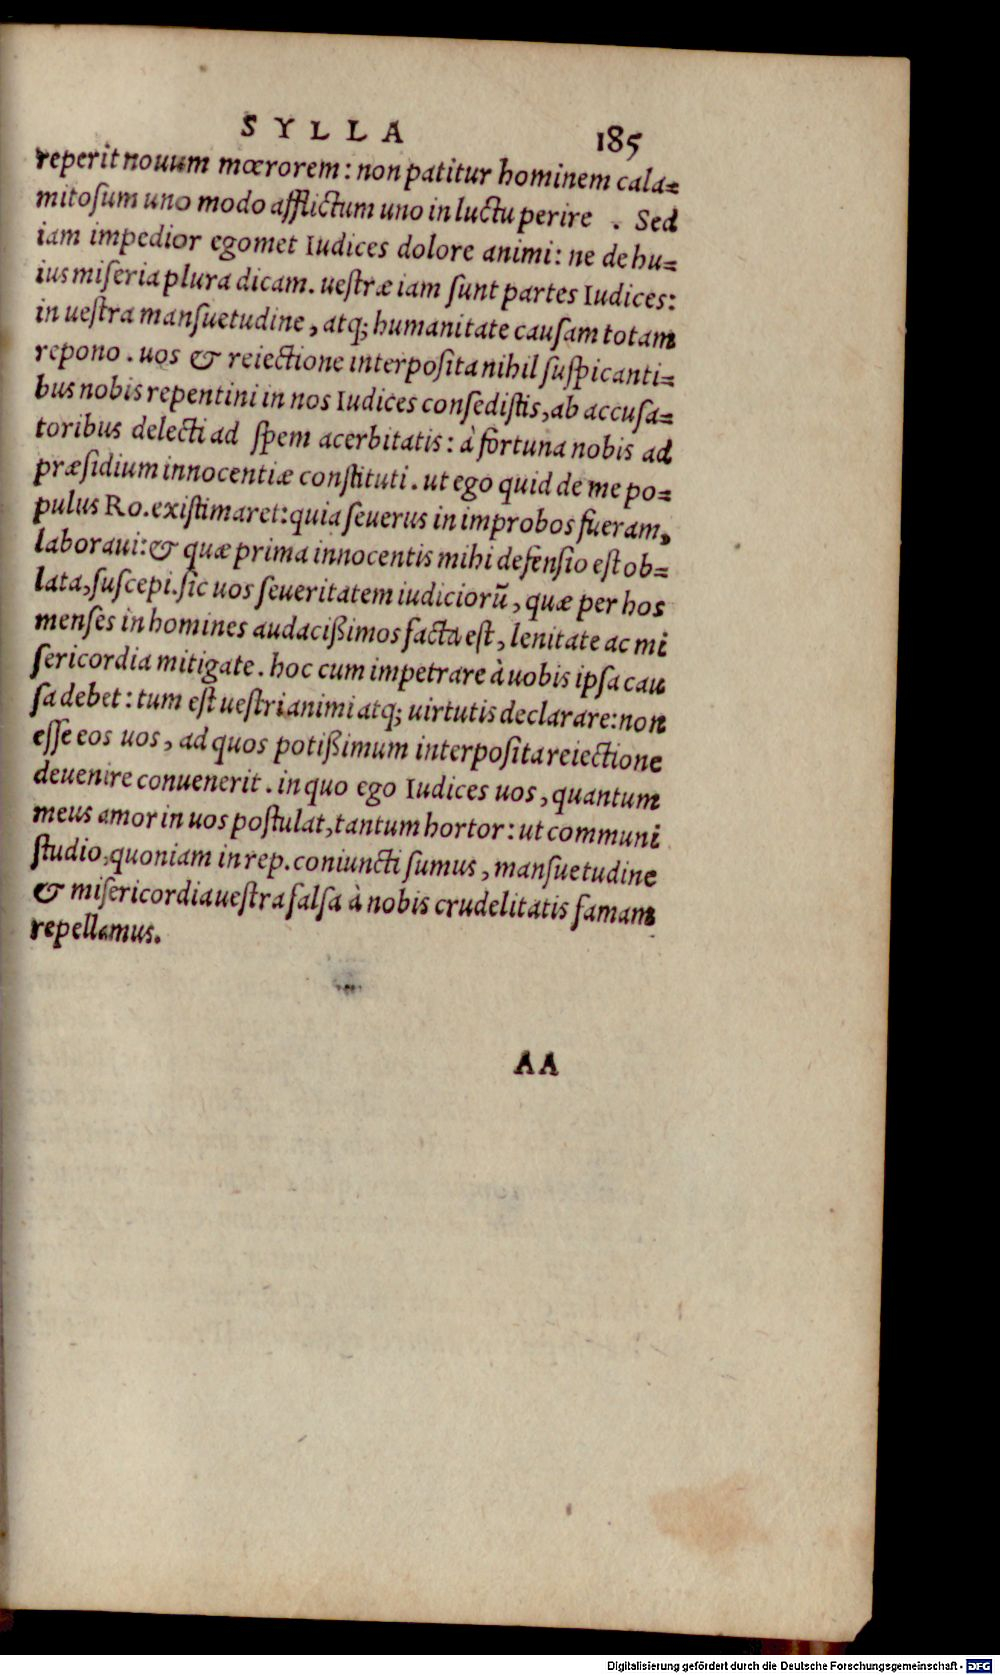 SYLLA 185
reperit nouum mœrorem: non patitur hominem cala=
mitoſum uno modo afflictum uno in luctu perire . Sed
iam impedior egomet Iudices dolore animi: ne de hu=
ius miſeria plura dicam. ueſtræ iam ſunt partes Iudices:
in ueſtra manſuetudine, atq; humanitate cauſam totam
repono. uos & reiectione interpoſita nihil ſuſpicanti=
bus nobis repentini in nos Iudices conſediſtis, ab accuſa=
toribus delecti ad ſpem acerbitatis: à fortuna nobis ad
præſidium innocentiæ conſtituti. ut ego quid de me po=
pulus Ro. exiſtimaret: quia ſeuerus in improbos fueram,
laboraui: & quæ prima innocentis mihi defenſio eſt ob=
lata, ſuſcepi. ſic uos ſeueritatem iudiciorū, quæ per hos
menſes in homines audacißimos facta eſt, lenitate ac mi
ſericordia mitigate. hoc cum impetrare à uobis ipſa cau
ſa debet: tum eſt ueſtri animi atq; uirtutis declarare: non
eſſe eos uos, ad quos potißimum interpoſita reiectione
deuenire conuenerit. in quo ego Iudices uos, quantum
meus amor in uos poſtulat, tantum hortor: ut communi
ſtudio, quoniam in rep. coniuncti ſumus, manſuetudine
& miſericordia ueſtra falſa à nobis crudelitatis famam
repellamus.
AA
Digitalisierung gefördert durch die Deutsche Forschungsgemeinschaft - DFG